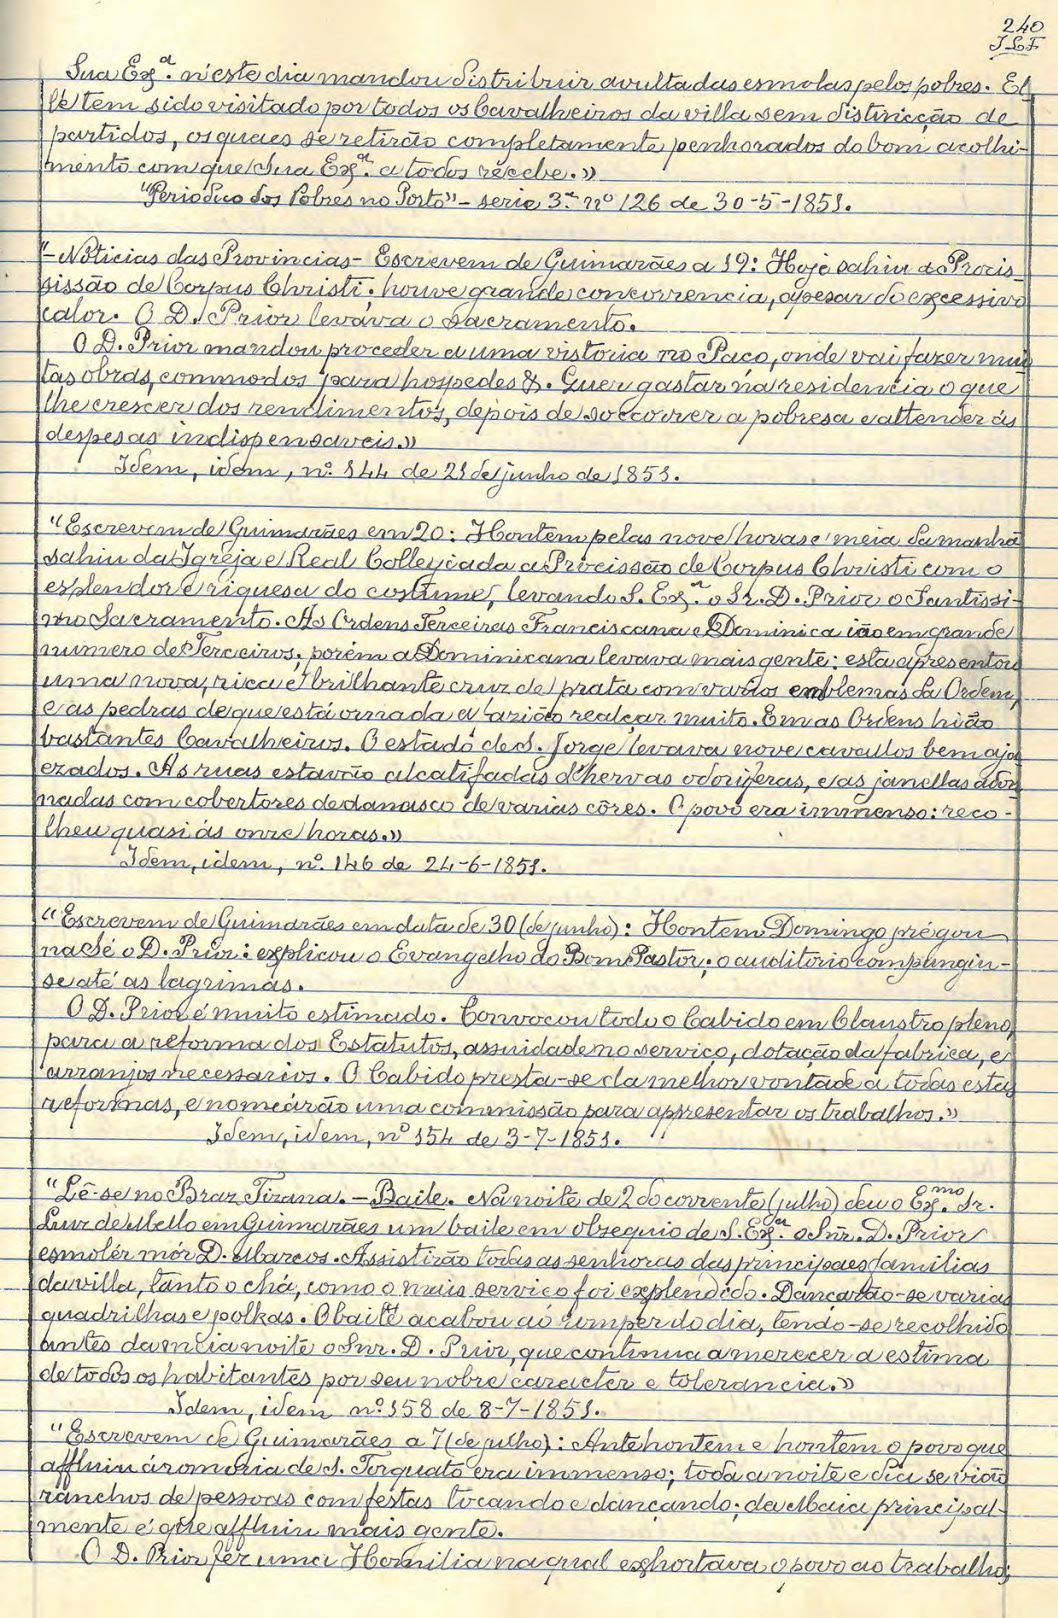 240
J.L.F
Sua Exª. n'este dia mandou distribuir avultadas esmolas pelos pobres. El-
le tem sido visitado por todos os Cavalheiros da villa sem distincção de
partidos, os quaes se retirão completamente penhorados do bom acolhi-
mento com que Sua Exª. a todos recebe.»
"Periodico dos Pobres no Porto" - serie 3ª nº 126 de 30-5-1851.
"- Noticias das Provincias - Escrevem de Guimarães a 19: Hoje sahiu a Procis-
sissão de Corpus Christi; houve grande concorrencia, apesar do excessivo
calor. O D. Prior levava o Sacramento.
O D. Prior mandou proceder a uma vistoria no Paço, onde vai fazer mui-
tas obras, commodos para hospedes &. Quer gastar na residencia o que
lhe crescer dos rendimentos, depois de soccorrer a pobresa e attender ás
despesas indispensaveis.»
Idem, idem, nº. 144 de 21 de junho de 1851.
"Escrevem de Guimarães em 20: Hontem pelas nove horas e meia da manhã
sahiu da Igreja e Real Collegiada a Procissão de Corpus Christi com o
esplendor e riquesa do costume, levando S. Exª. o Sr. D. Prior o Santissi-
mo Sacramento. As Ordens Terceiras Franciscana e Dominica ião em grande
numero de Terceiros, porém a Dominicana levava mais gente; esta apresentou
uma nova, rica e brilhante cruz de prata com varios emblemas da Ordem,
e as pedras de que está ornada a fazião realçar muito. Em as Ordens hião
bastantes Cavalheiros. O estado de S. Jorge levava nove cavallos bem aja-
ezados. As ruas estavão alcatifadas d'hervas odoriferas, e as janellas ador-
nadas com cobertores de damasco de varias côres. O povo era immenso: reco-
lheu quasi ás onze horas.»
Idem, idem, nº. 146 de 24-6-1851.
"Escrevem de Guimarães em data de 30 (de junho): Hontem Domingo prégou
na Sé o D. Prior: explicou o Evangelho do Bom Pastor; o auditorio compungiu-
se até as lagrimas.
O D. Prior é muito estimado. Convocou todo o Cabido em Claustro pleno,
para a reforma dos Estatutos, assuidade no serviço, dotação da fabrica, e
arranjos necessarios. O Cabido presta-se da melhor vontade a todas estas
reformas, e nomeárão uma commissão para appresentar os trabalhos.»
Idem, idem, nº 154 de 3-7-1851.
"Lê-se no Braz Tizana. - Baile. Na noite de 2 do corrente (julho) deu o Exmo. Sr.
Luiz de Mello em Guimarães um baile em obsequio de S. Exª. o Snr. D. Prior
esmolér mór D. Marcos. Assistirão todas as senhoras das principaes familias
da villa, tanto o chá, como o mais serviço foi explendido. Dançarão-se varias
quadrilhas e polkas. O baile acabou ao romper do dia, tendo-se recolhido
antes da meia noite o Snr. D. Prior, que continua a merecer a estima
de todos os habitantes por seu nobre caracter e tolerancia.»
Idem, idem nº. 158 de 8-7-1851.
"Escrevem de Guimarães a 7 (de julho): Antehontem e hontem o povo que
affluiu á romaria de S. Torquato era immenso; toda a noite e dia se vião
ranchos de pessoas com festas tocando e dançando; da Maia principal-
mente é que affluiu mais gente.
O D. Prior fez uma Homilia na qual exhortava o povo ao trabalho;